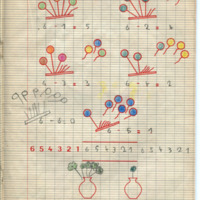 6 - 1 = 5 6 - 2 = 4
6 - 3 = 3 6 - 4 = 2
6 - 6 = 0 6 - 5 = 1
6 5 4 3 2 1 6 5 4 3 2 1